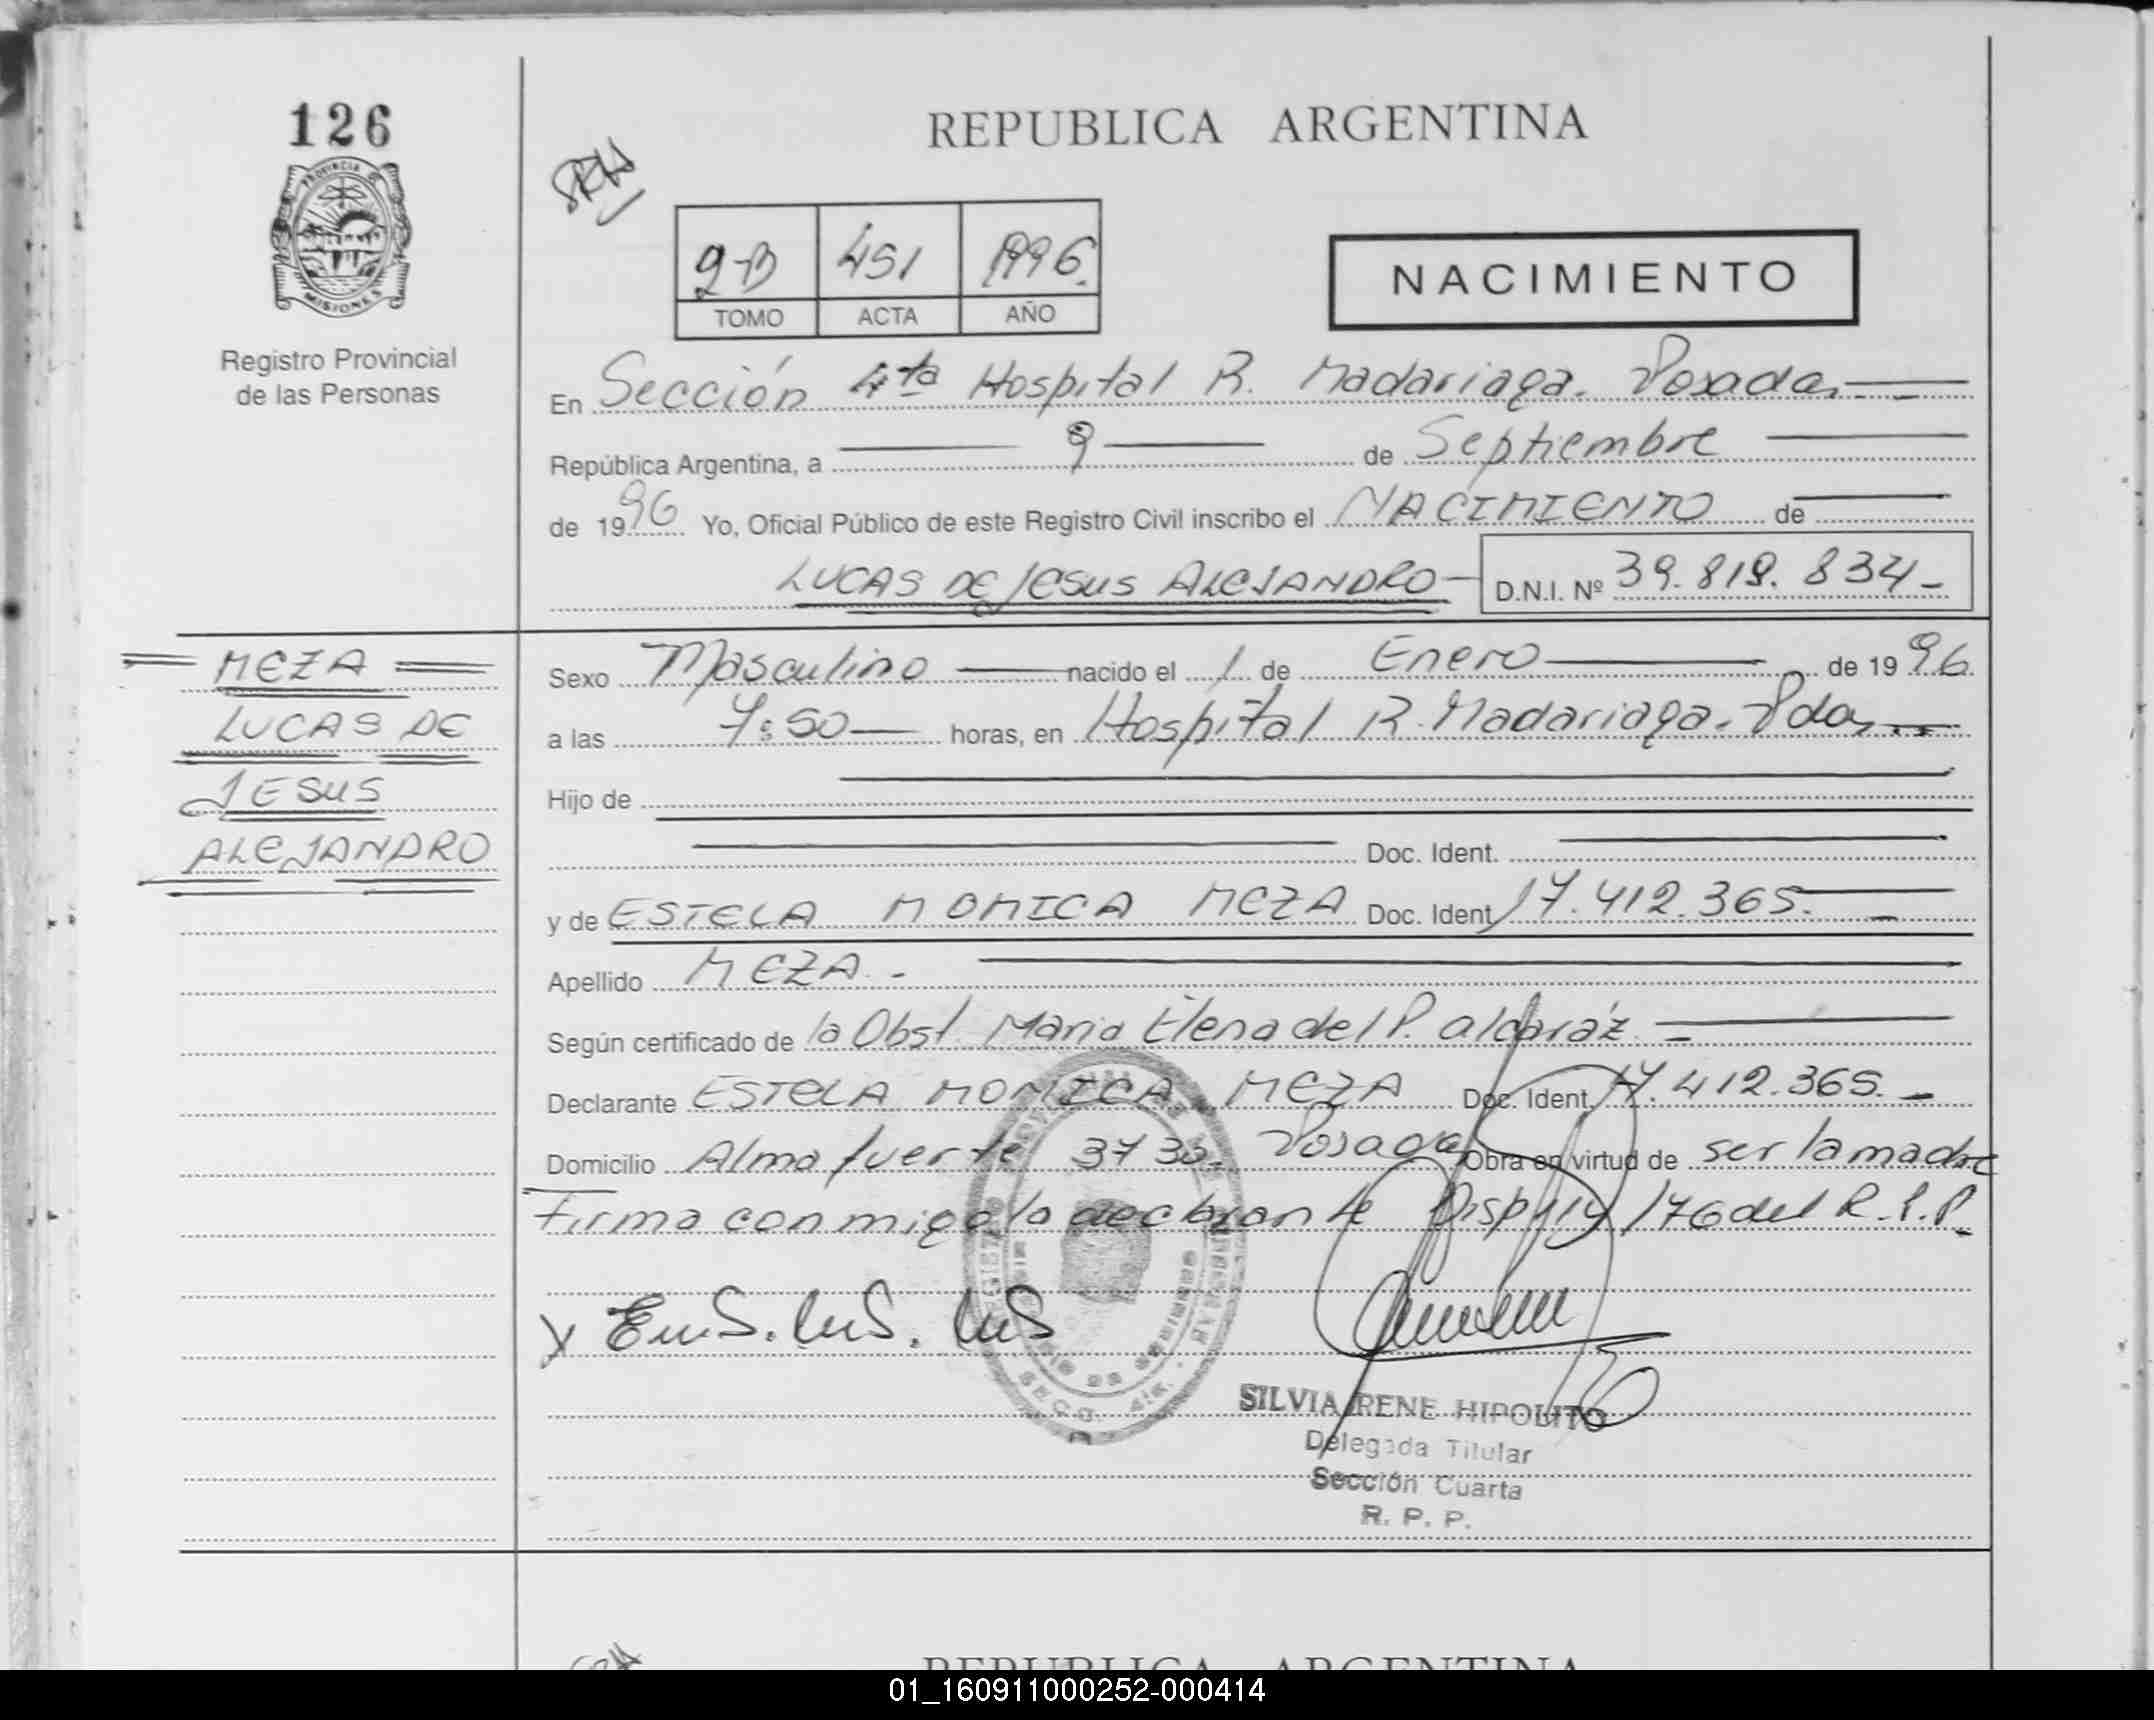 126
PROVINCIA DE
MISIONES
Registro Provincial
de las Personas
REPUBLICA ARGENTINA
2-B 451 1996.
TOMO ACTA AÑO
NACIMIENTO
En Sección 4ta Hospital R. Madariaga. Posadas
República Argentina, a 9 de Septiembre
de 1996 Yo, Oficial Público de este Registro Civil inscribo el NACIMIENTO de
LUCAS DE JESUS ALEJANDRO D.N.I. Nº 39.819.834-
MEZA
LUCAS DE
JESUS
ALEJANDRO
Sexo Masculino nacido el 1 de Enero de 1996.
a las 7:50 horas, en Hospital R. Madariaga. Pdas
Hijo de
Doc. Ident.
y de ESTELA MONICA MEZA Doc. Ident. 17.412.365.
Apellido MEZA.-
Según certificado de la Obst. Maria Elena del P. Alcaráz.
Declarante ESTELA MONICA MEZA Doc. Ident. 17.412.365.-
Domicilio Almafuerte 3730. Posadas Obra en virtud de ser la madre
Firma conmigo la declarante Disp 176 del R.P.P.
X
SILVIA IRENE HIPOLITO
Delegada Titular
Sección Cuarta
R. P. P.
REPUBLICA ARGENTINA
01_160911000252-000414